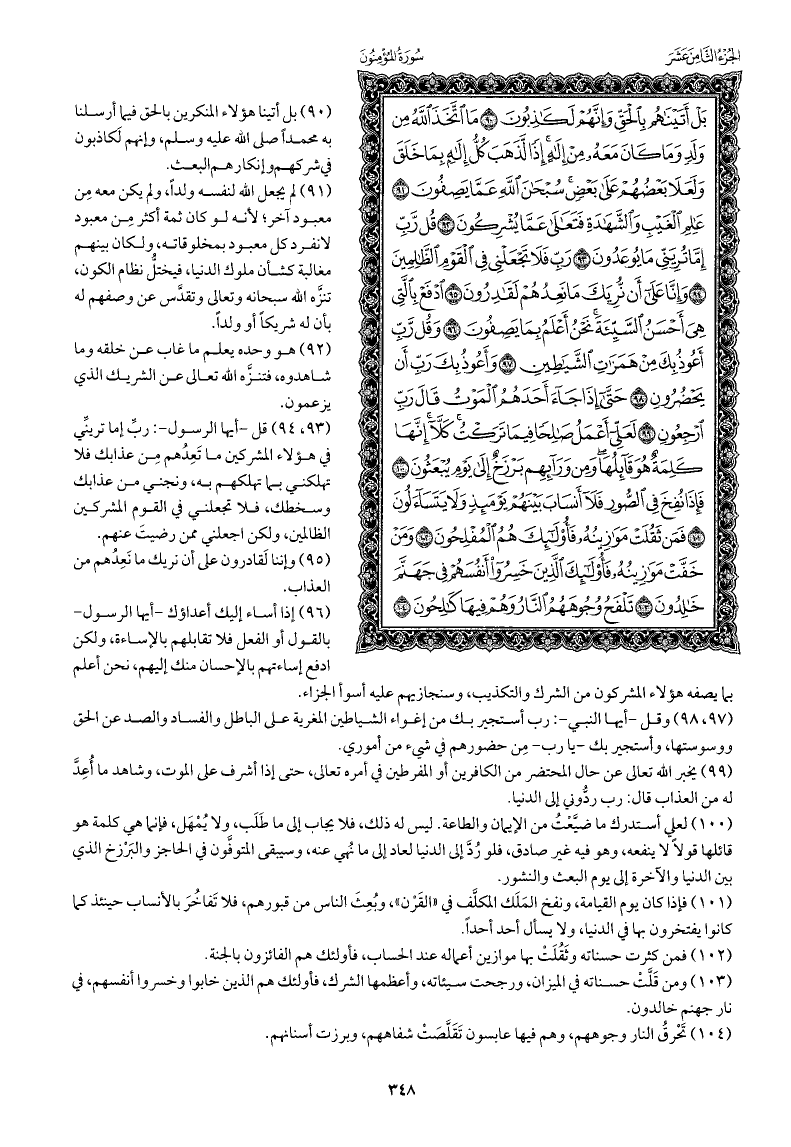 الجزء الثامن عشر
سورة المؤمنون
بَلْ أَتَيْنَٰهُم بِٱلْحَقِّ وَإِنَّهُمْ لَكَٰذِبُونَ ٩٠ مَا ٱتَّخَذَ ٱللَّهُ مِن
وَلَدٍ وَمَا كَانَ مَعَهُۥ مِنْ إِلَٰهٍ ۚ إِذًا لَّذَهَبَ كُلُّ إِلَٰهٍۭ بِمَا خَلَقَ
وَلَعَلَا بَعْضُهُمْ عَلَىٰ بَعْضٍ ۚ سُبْحَٰنَ ٱللَّهِ عَمَّا يَصِفُونَ ٩١
عَٰلِمِ ٱلْغَيْبِ وَٱلشَّهَٰدَةِ فَتَعَٰلَىٰ عَمَّا يُشْرِكُونَ ٩٢ قُل رَّبِّ
إِمَّا تُرِيَنِّي مَا يُوعَدُونَ ٩٣ رَبِّ فَلَا تَجْعَلْنِي فِي ٱلْقَوْمِ ٱلظَّٰلِمِينَ
٩٤ وَإِنَّا عَلَىٰٓ أَن نُّرِيَكَ مَا نَعِدُهُمْ لَقَٰدِرُونَ ٩٥ ٱدْفَعْ بِٱلَّتِي
هِيَ أَحْسَنُ ٱلسَّيِّئَةَ ۚ نَحْنُ أَعْلَمُ بِمَا يَصِفُونَ ٩٦ وَقُل رَّبِّ
أَعُوذُ بِكَ مِنْ هَمَزَٰتِ ٱلشَّيَٰطِينِ ٩٧ وَأَعُوذُ بِكَ رَبِّ أَن
يَحْضُرُونِ ٩٨ حَتَّىٰٓ إِذَا جَآءَ أَحَدَهُمُ ٱلْمَوْتُ قَالَ رَبِّ
ٱرْجِعُونِ ٩٩ لَعَلِّيٓ أَعْمَلُ صَٰلِحًا فِيمَا تَرَكْتُ ۚ كَلَّآ ۚ إِنَّهَا
كَلِمَةٌ هُوَ قَآئِلُهَا ۖ وَمِن وَرَآئِهِم بَرْزَخٌ إِلَىٰ يَوْمِ يُبْعَثُونَ ١٠٠
فَإِذَا نُفِخَ فِي ٱلصُّورِ فَلَآ أَنسَابَ بَيْنَهُمْ يَوْمَئِذٍ وَلَا يَتَسَآءَلُونَ
١٠١ فَمَن ثَقُلَتْ مَوَٰزِينُهُۥ فَأُو۟لَٰٓئِكَ هُمُ ٱلْمُفْلِحُونَ ١٠٢ وَمَنْ
خَفَّتْ مَوَٰزِينُهُۥ فَأُو۟لَٰٓئِكَ ٱلَّذِينَ خَسِرُوٓا۟ أَنفُسَهُمْ فِي جَهَنَّمَ
خَٰلِدُونَ ١٠٣ تَلْفَحُ وُجُوهَهُمُ ٱلنَّارُ وَهُمْ فِيهَا كَٰلِحُونَ ١٠٤
(٩٠) بل أتينا هؤلاء المنكرين بالحق فيما أرسلنا
به محمداً صلى الله عليه وسلم، وإنهم لَكاذبون
في شركهم وإنكارهم البعث.
(٩١) لم يجعل الله لنفسه ولداً، ولم يكن معه مِن
معبود آخر؛ لأنه لو كان ثمة أكثر مِن معبود
لانفرد كل معبود بمخلوقاته، ولكان بينهم
مغالبة كشأن ملوك الدنيا، فيختلُّ نظام الكون،
تنزَّه الله سبحانه وتعالى وتقدَّس عن وصفهم له
بأن له شريكاً أو ولداً.
(٩٢) هو وحده يعلم ما غاب عن خلقه وما
شاهدوه، فتنزَّه الله تعالى عن الشريك الذي
يزعمون.
(٩٣، ٩٤) قل -أيها الرسول-: ربِّ إما ترينِّي
في هؤلاء المشركين ما تَعِدُهم مِن عذابك فلا
تهلكني بما تهلكهم به، ونجني من عذابك
وسخطك، فلا تجعلني في القوم المشركين
الظالمين، ولكن اجعلني ممن رضيتَ عنهم.
(٩٥) وإننا لَقادرون على أن نريك ما نَعِدُهم من
العذاب.
(٩٦) إذا أساء إليك أعداؤك -أيها الرسول-
بالقول أو الفعل فلا تقابلهم بالإساءة، ولكن
ادفع إساءتهم بالإحسان منك إليهم، نحن أعلم
بما يصفه هؤلاء المشركون من الشرك والتكذيب، وسنجازيهم عليه أسوأ الجزاء.
(٩٧، ٩٨) وقل -أيها النبي-: رب أستجير بك من إغواء الشياطين المغرية على الباطل والفساد والصد عن الحق
ووسوستها، وأستجير بك -يا رب- مِن حضورهم في شيء من أموري.
(٩٩) يخبر الله تعالى عن حال المحتضر من الكافرين أو المفرطين في أمره تعالى، حتى إذا أشرف على الموت، وشاهد ما أُعِدَّ
له من العذاب قال: رب ردُّوني إلى الدنيا.
(١٠٠) لعلي أستدرك ما ضيَّعْتُ من الإيمان والطاعة. ليس له ذلك، فلا يجاب إلى ما طَلَب، ولا يُمْهَل، فإنما هي كلمة هو
قائلها قولاً لا ينفعه، وهو فيه غير صادق، فلو رُدَّ إلى الدنيا لعاد إلى ما نُهي عنه، وسيبقى المتوفَّون في الحاجز والبَرْزخ الذي
بين الدنيا والآخرة إلى يوم البعث والنشور.
(١٠١) فإذا كان يوم القيامة، ونفخ المَلَك المكلَّف في «القَرْن»، وبُعِثَ الناس من قبورهم، فلا تَفاخُرَ بالأنساب حينئذ كما
كانوا يفتخرون بها في الدنيا، ولا يسأل أحد أحداً.
(١٠٢) فمن كثرت حسناته وثَقُلَتْ بها موازين أعماله عند الحساب، فأولئك هم الفائزون بالجنة.
(١٠٣) ومن قَلَّتْ حسناته في الميزان، ورجحت سيئاته، وأعظمها الشرك، فأولئك هم الذين خابوا وخسروا أنفسهم، في
نار جهنم خالدون.
(١٠٤) تَحْرقُ النار وجوههم، وهم فيها عابسون تَقَلَّصَتْ شفاههم، وبرزت أسنانهم.
٣٤٨